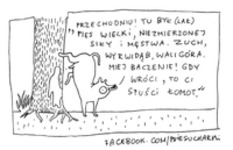 PRZECHODNIU! TU BYŁ (LAŁ)
"PIES WIELKI, NIEZMIERZONEJ
SIŁY I MĘSTWA. ZUCH,
WYRWIDĄB, WALIGÓRA.
MIEJ BACZENIE! GDY
WRÓCI, TO CI
SPUŚCI ŁOMOT."
FACEBOOK.COM/PSIESUCHARKI